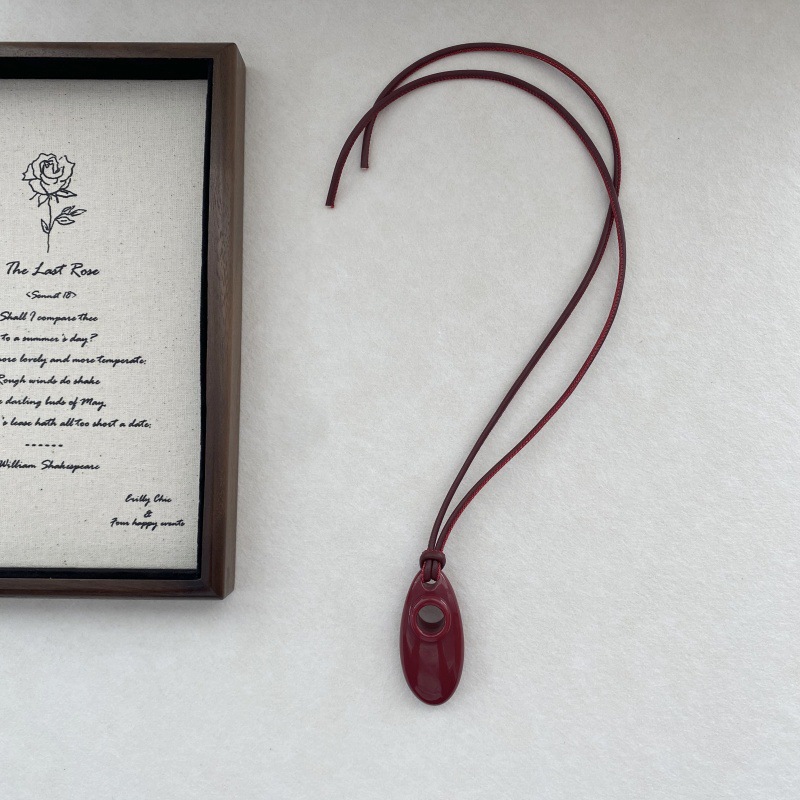 The Last Rose
<Sonnet 18>
Shall I compare thee
to a summer's day?
more lovely and more temperate:
Rough winds do shake
darling buds of May,
's lease hath all too short a date;
------
William Shakespeare
Erilly Chic
&
Four happy wents